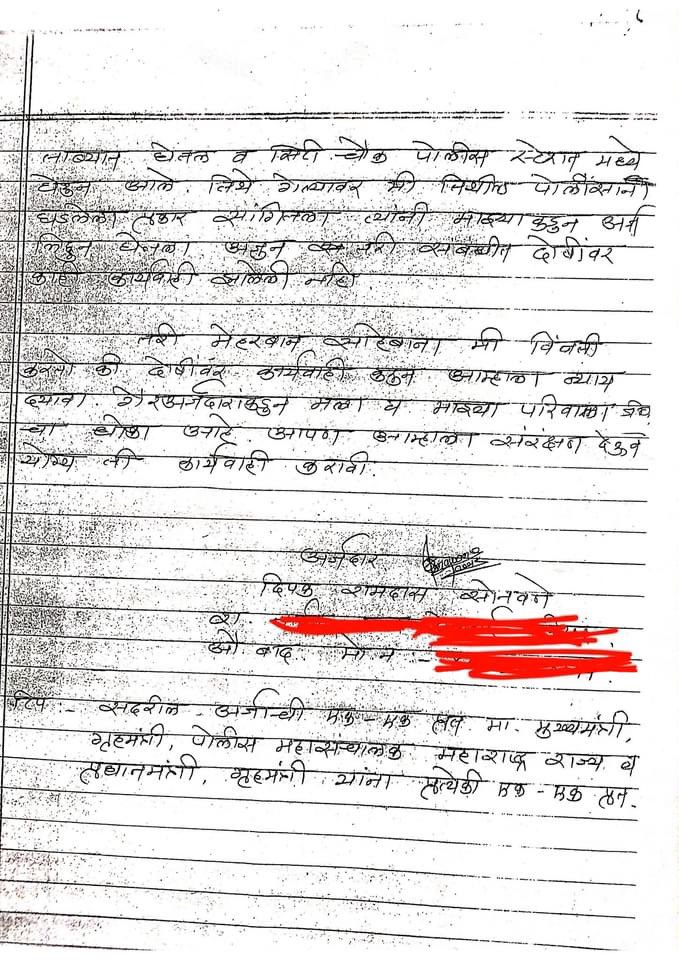 ६
ताब्यात घेतल व सिटी चौक पोलीस स्टेशन मध्ये
घेऊन आले. तिथे गेल्यावर मी तिथील पोलीसांनी
घडलेला प्रकार सांगितला त्यांनी माझ्या कडुन अर्ज
लिहुन घेतला अजुन तरी संबधीत दोषींवर
काही कार्यवाही झालेली नाहि
तरी मेहरबान साहेबाना मी विंनती
करतो की दोषींवर कार्यवाही करुन आम्हाला न्याय
द्यावा गैरअर्जदारांकडुन मला व माझ्या परिवाला
चा धोका आहे. आपण आम्हाला संरक्षण देऊन
योग्य ती कार्यवाही करावी.
अर्जदार
दिपक रामदास सोनवणे
रा.
औ. बाद मो न -
टिप :- सदरील अर्जाची एक-एक प्रत मा. मुख्यमंत्री,
गृहमंत्री, पोलीस महासंचालक महाराष्ट्र राज्य व
प्रधानमंत्री, गृहमंत्री यांना प्रत्येकी एक-एक प्रत.